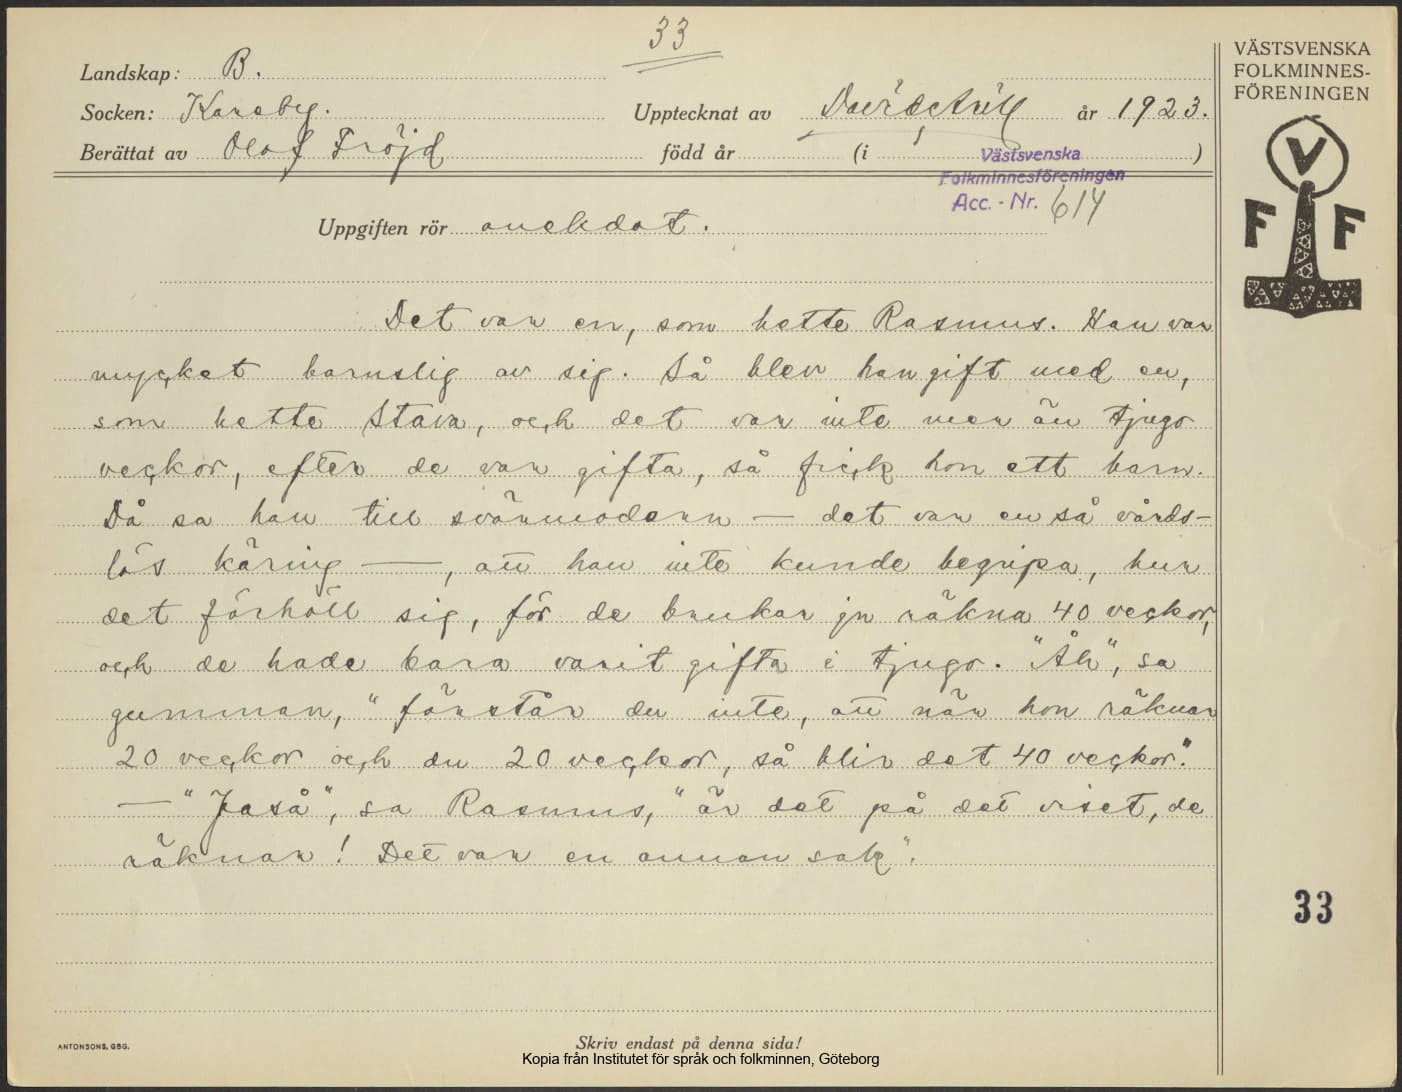 33
Landskap: B.
Socken: Kareby. Upptecknat av David Arill år 1923.
Berättat av Olof Fröjd född år (i )
Västsvenska
Folkminnesföreningen
Acc. - Nr. 614
Uppgiften rör anekdot.
Det var en, som hette Rasmus. Han var
mycket barnslig av sig. Så blev han gift med en,
som hette Stava, och det var inte mer än tjugo
veckor, efter de var gifta, så fick hon ett barn.
Då sa han till svärmodern — det var en så vårds-
lös käring —, att han inte kunde begripa, hur
det förhöll sig, för de brukar ju räkna 40 veckor,
och de hade bara varit gifta i tjugo. "Åh", sa
gumman, "förstår du inte, att när hon räknar
20 veckor och du 20 veckor, så blir det 40 veckor."
— "Jaså", sa Rasmus, "är det på det viset, de
räknar! Det var en annan sak".
ANTONSONS, GBG.
Skriv endast på denna sida!
Kopia från Institutet för språk och folkminnen, Göteborg
VÄSTSVENSKA
FOLKMINNES-
FÖRENINGEN
V
F F
33